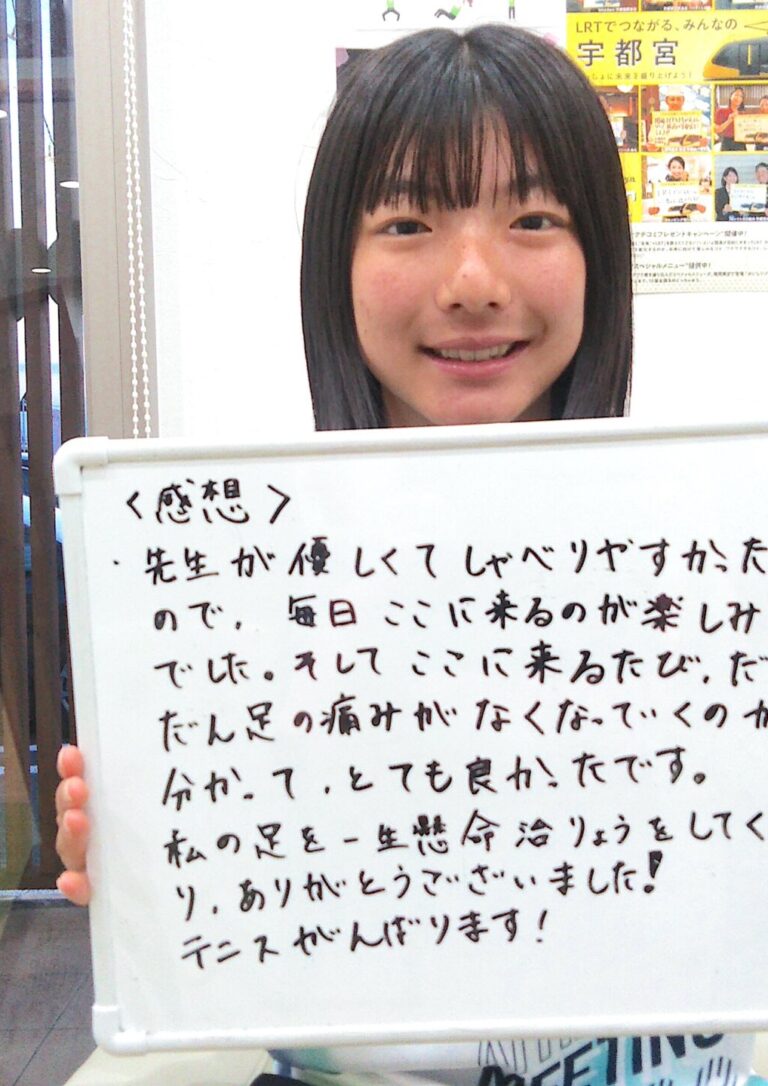 LRTでつながる、みんなの
宇都宮
<感想>
・先生が優しくてしゃべりやすかった
ので、毎日ここに来るのが楽しみ
でした。そしてここに来るたび、だ
だん足の痛みがなくなっていくのが
分かって、とても良かったです。
私の足を一生懸命治りょうをしてく
り、ありがとうございました!
テニスがんばります!
MEETING